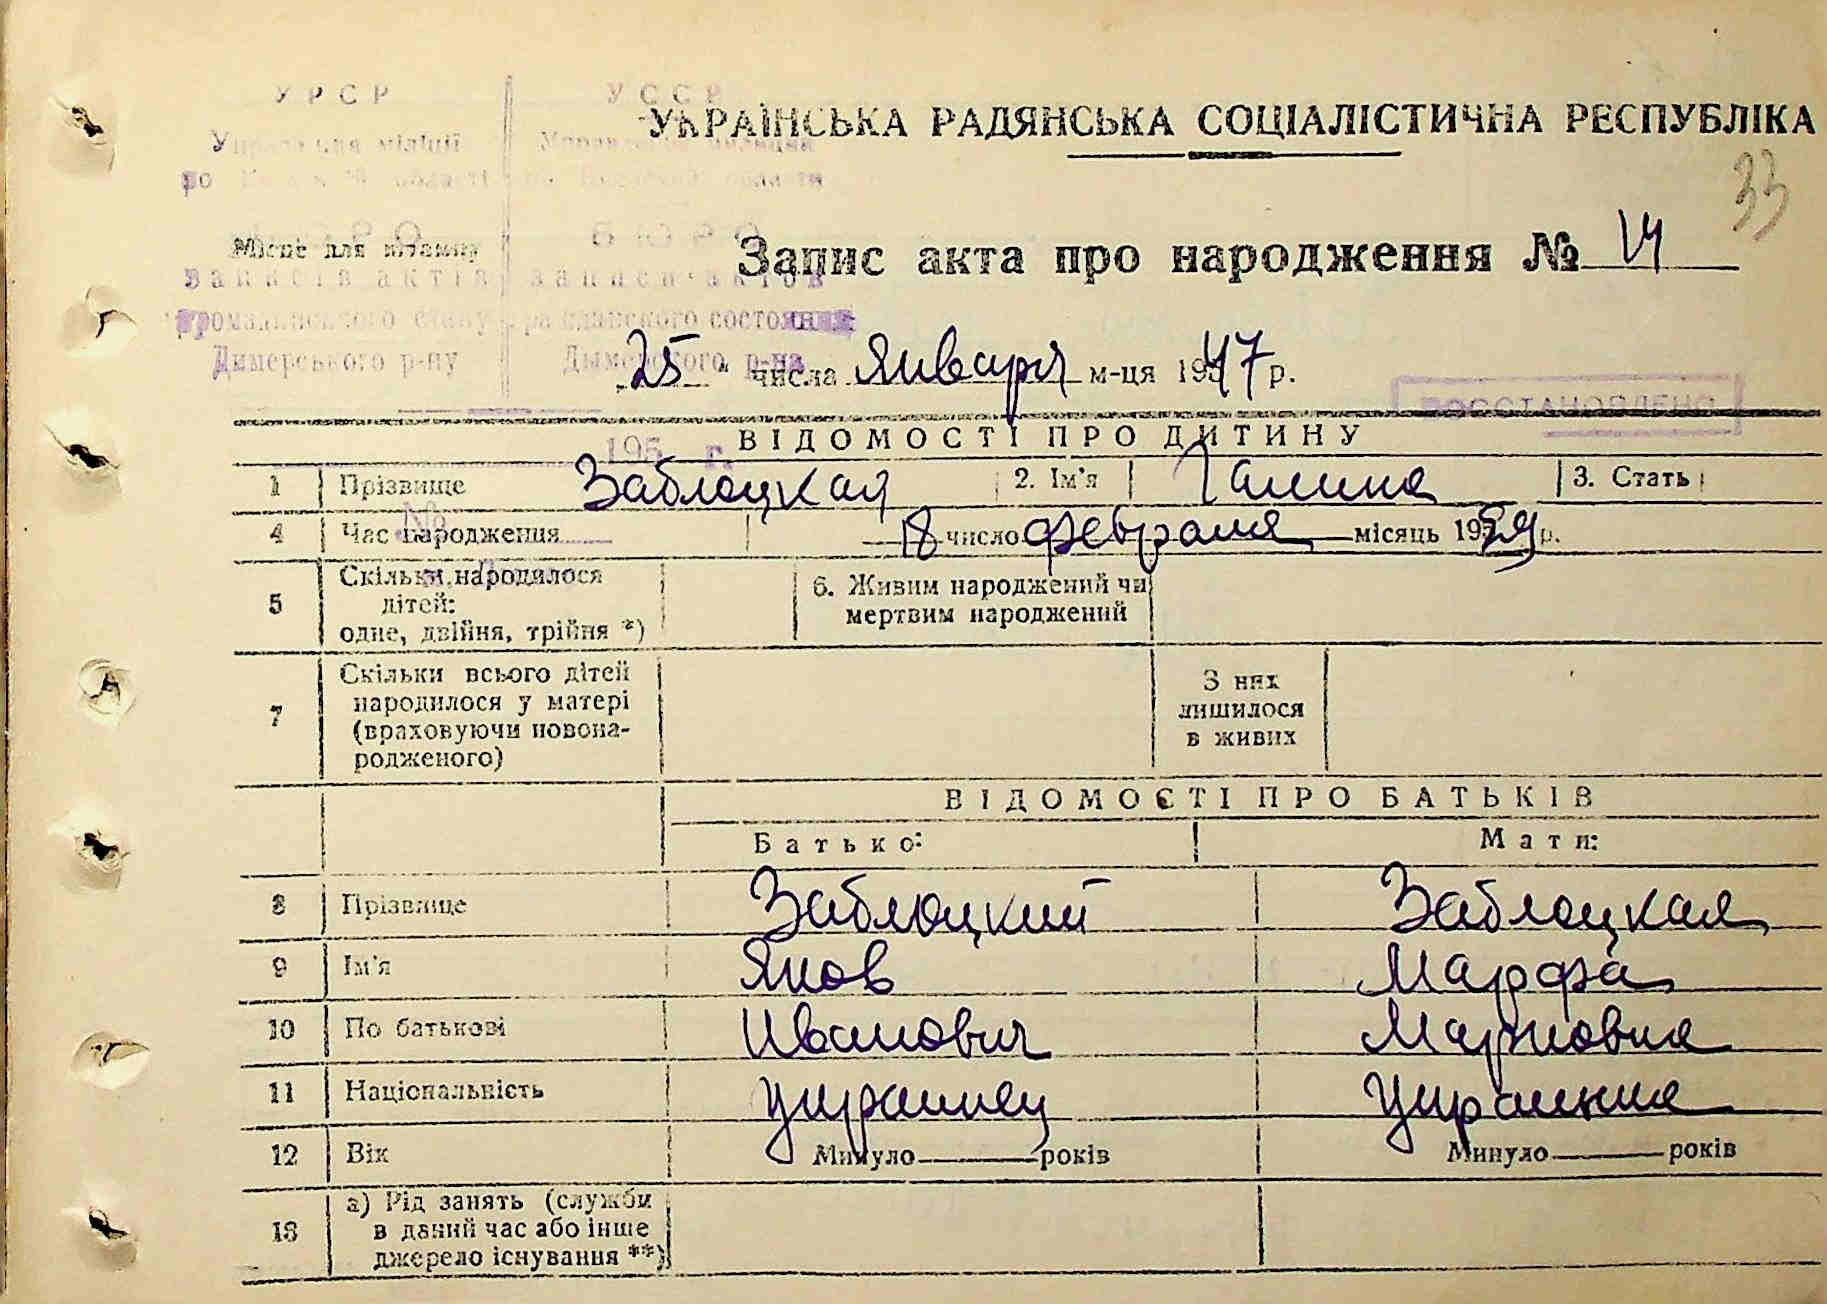 УРСР УССР
УКРАЇНСЬКА РАДЯНСЬКА СОЦІАЛІСТИЧНА РЕСПУБЛІКА
Управління міліції Управление милиции
по області по области
33
БЮРО БЮРО
Місце для штампу
Запис акта про народження № 14
записів актів записи актов
громадянського стану гражданского состояния
Димерського р-ну Дымерского р-на
„25" числа Января м-ця 1947 р.
ВОССТАНОВЛЕНО
195 г.
ВІДОМОСТІ ПРО ДИТИНУ
1 Прізвище Заблоцкая 2. Ім'я Галина 3. Стать
№
4 Час народження 18 число февраля місяць 1929 р.
5 Скільки народилося дітей: одне, двійня, трійня *) 6. Живим народжений чи мертвим народжений
7 Скільки всього дітей народилося у матері (враховуючи новонародженого) З них лишилося в живих
ВІДОМОСТІ ПРО БАТЬКІВ
Батько: Мати:
8 Прізвище Заблоцкий Заблоцкая
9 Ім'я Яков Марфа
10 По батькові Иванович Марковна
11 Національність украинец Украинка
12 Вік Минуло років Минуло років
13 а) Рід занять (служби в даний час або інше джерело існування **)